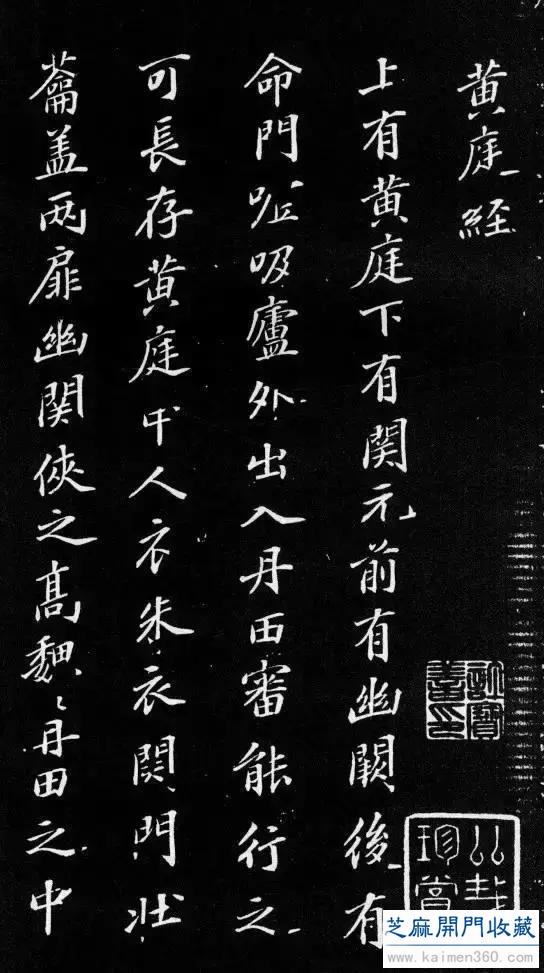 黄庭経
上有黄庭下有関元前有幽闕後有
命門嘘吸廬外出入丹田審能行之
可長存黄庭中人衣朱衣関門壮
蘥盖两扉幽関俠之高魏〻丹田之中
芝麻開門收藏
www.kaimen360.com